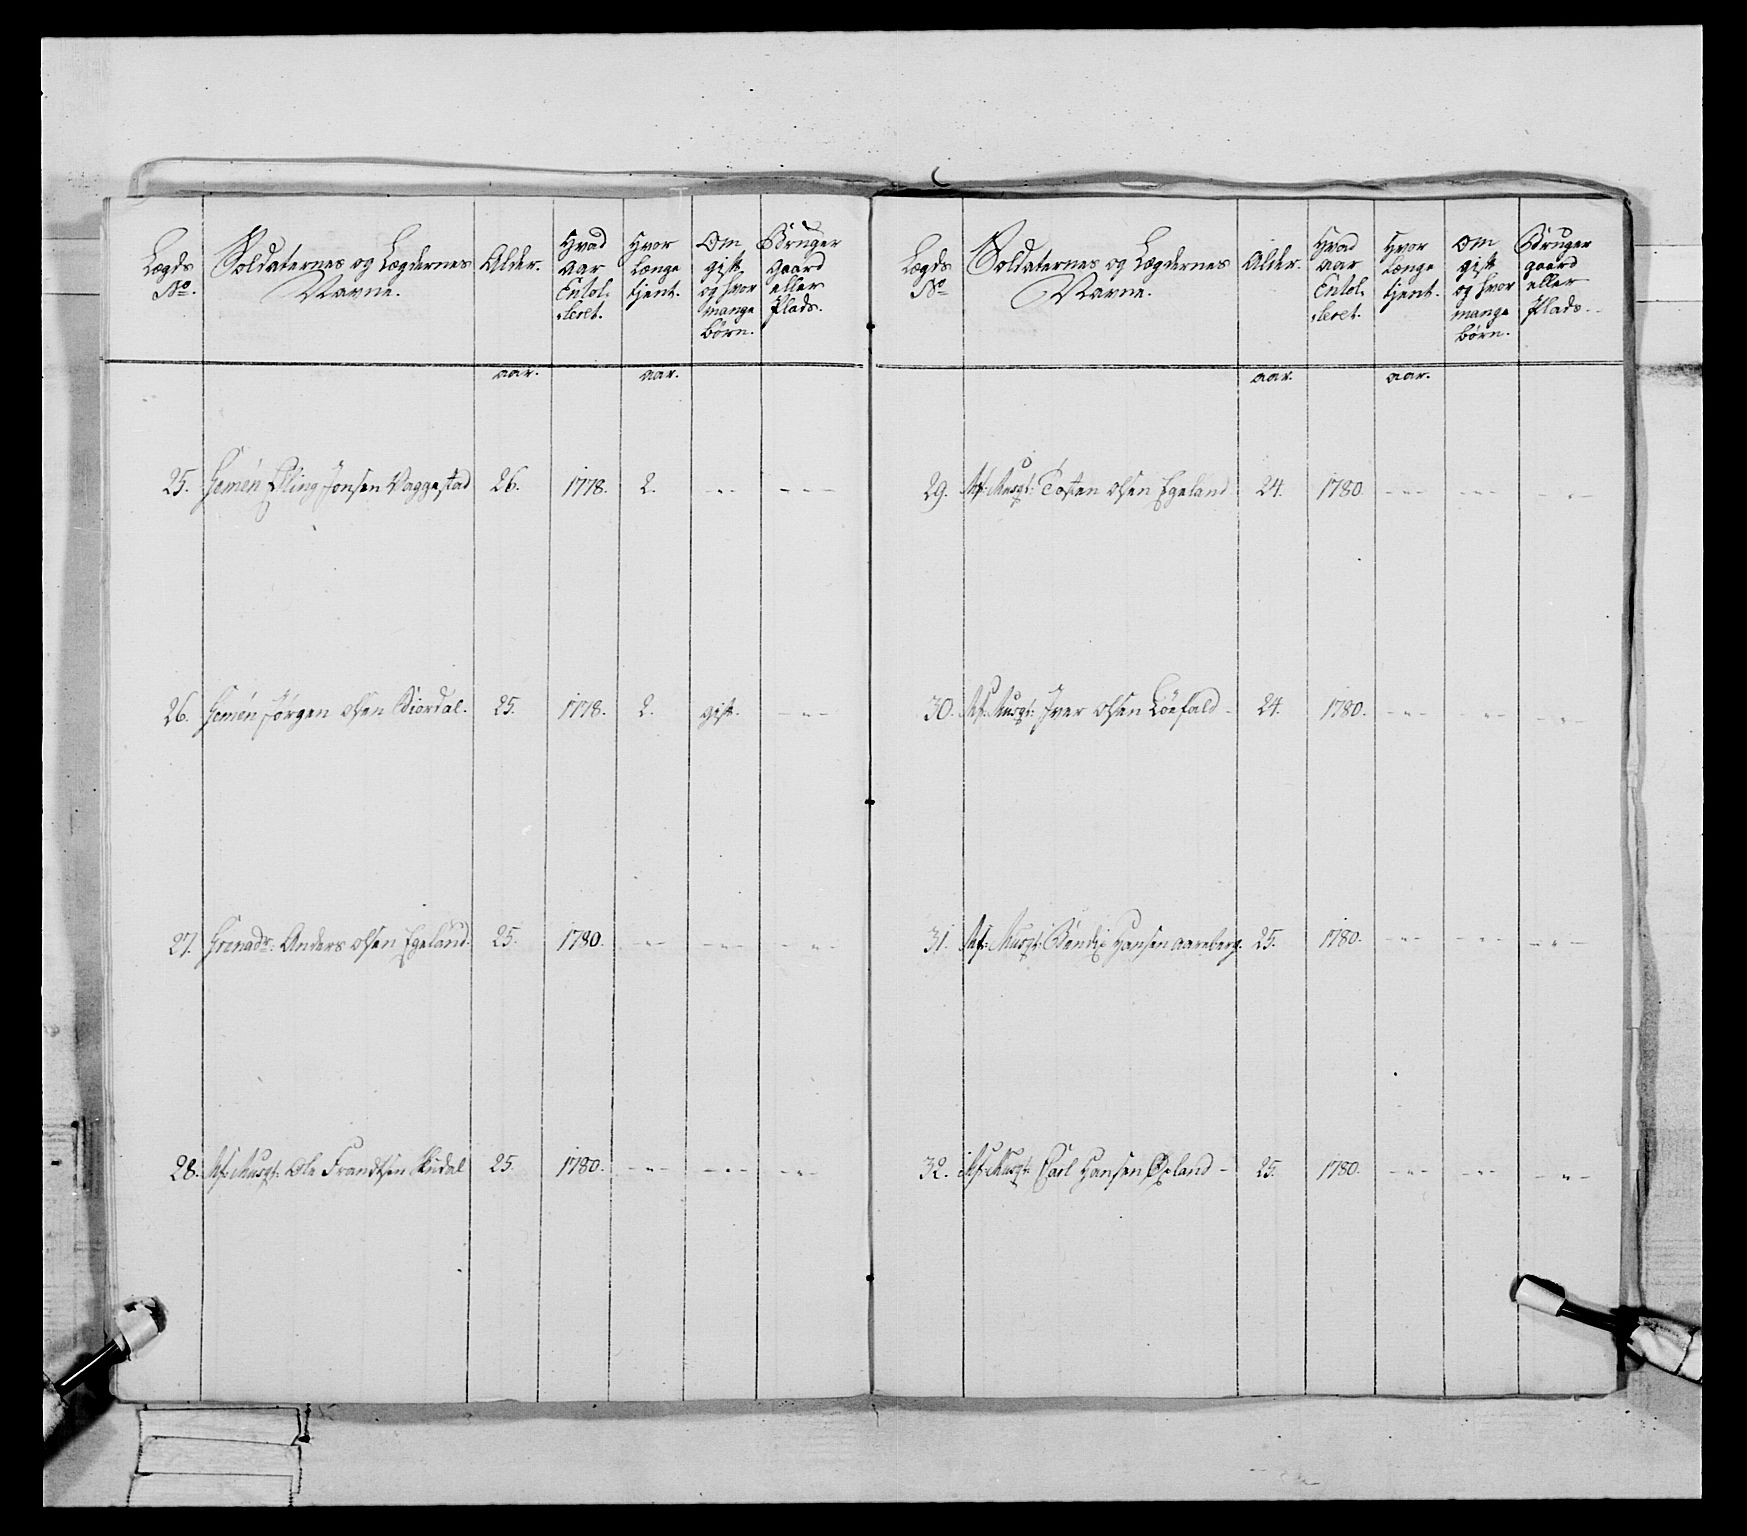 Lægds No. Soldaternes og Lægdernes Navne. Alder. Hvad aar Enrol, leret. Hvor Længe tjent. Om gift og hvor mange børn. Bruger gaard eller Plads.
aar. aar.
25. Gemën Jonsen Vaggestad 26. 1778. 2. - - - - - -
26. Gemën Jørgen Olsen Siordal. 25. 1778. 2. gift. - " -
27. Grenadr: Anders Olsen Egeland. 25. 1780. - " - - " - - " -
28. Musqt: Ole Frandtsen 25. 1780. - " - - " - - " -
Lægds No Soldaternes og Lægdernes Navne. Alder. Hvad aar Enrol, leret. Hvor Længe tjent. Om gift og hvor mange børn. Bruger gaard eller Plads.
aar. aar.
29. Musqt: Tosten Olsen Egeland 24. 1780. - " - - " - - " -
30. Musqt: Iver Olsen Löefald 24. 1780. - " - - " - - " -
31. Musqt: Bendix Hansen Aareberg. 25. 1780. - " - - " - - " -
32. Musqt: Carl Hansen 25. 1780. - " - - " - - " -